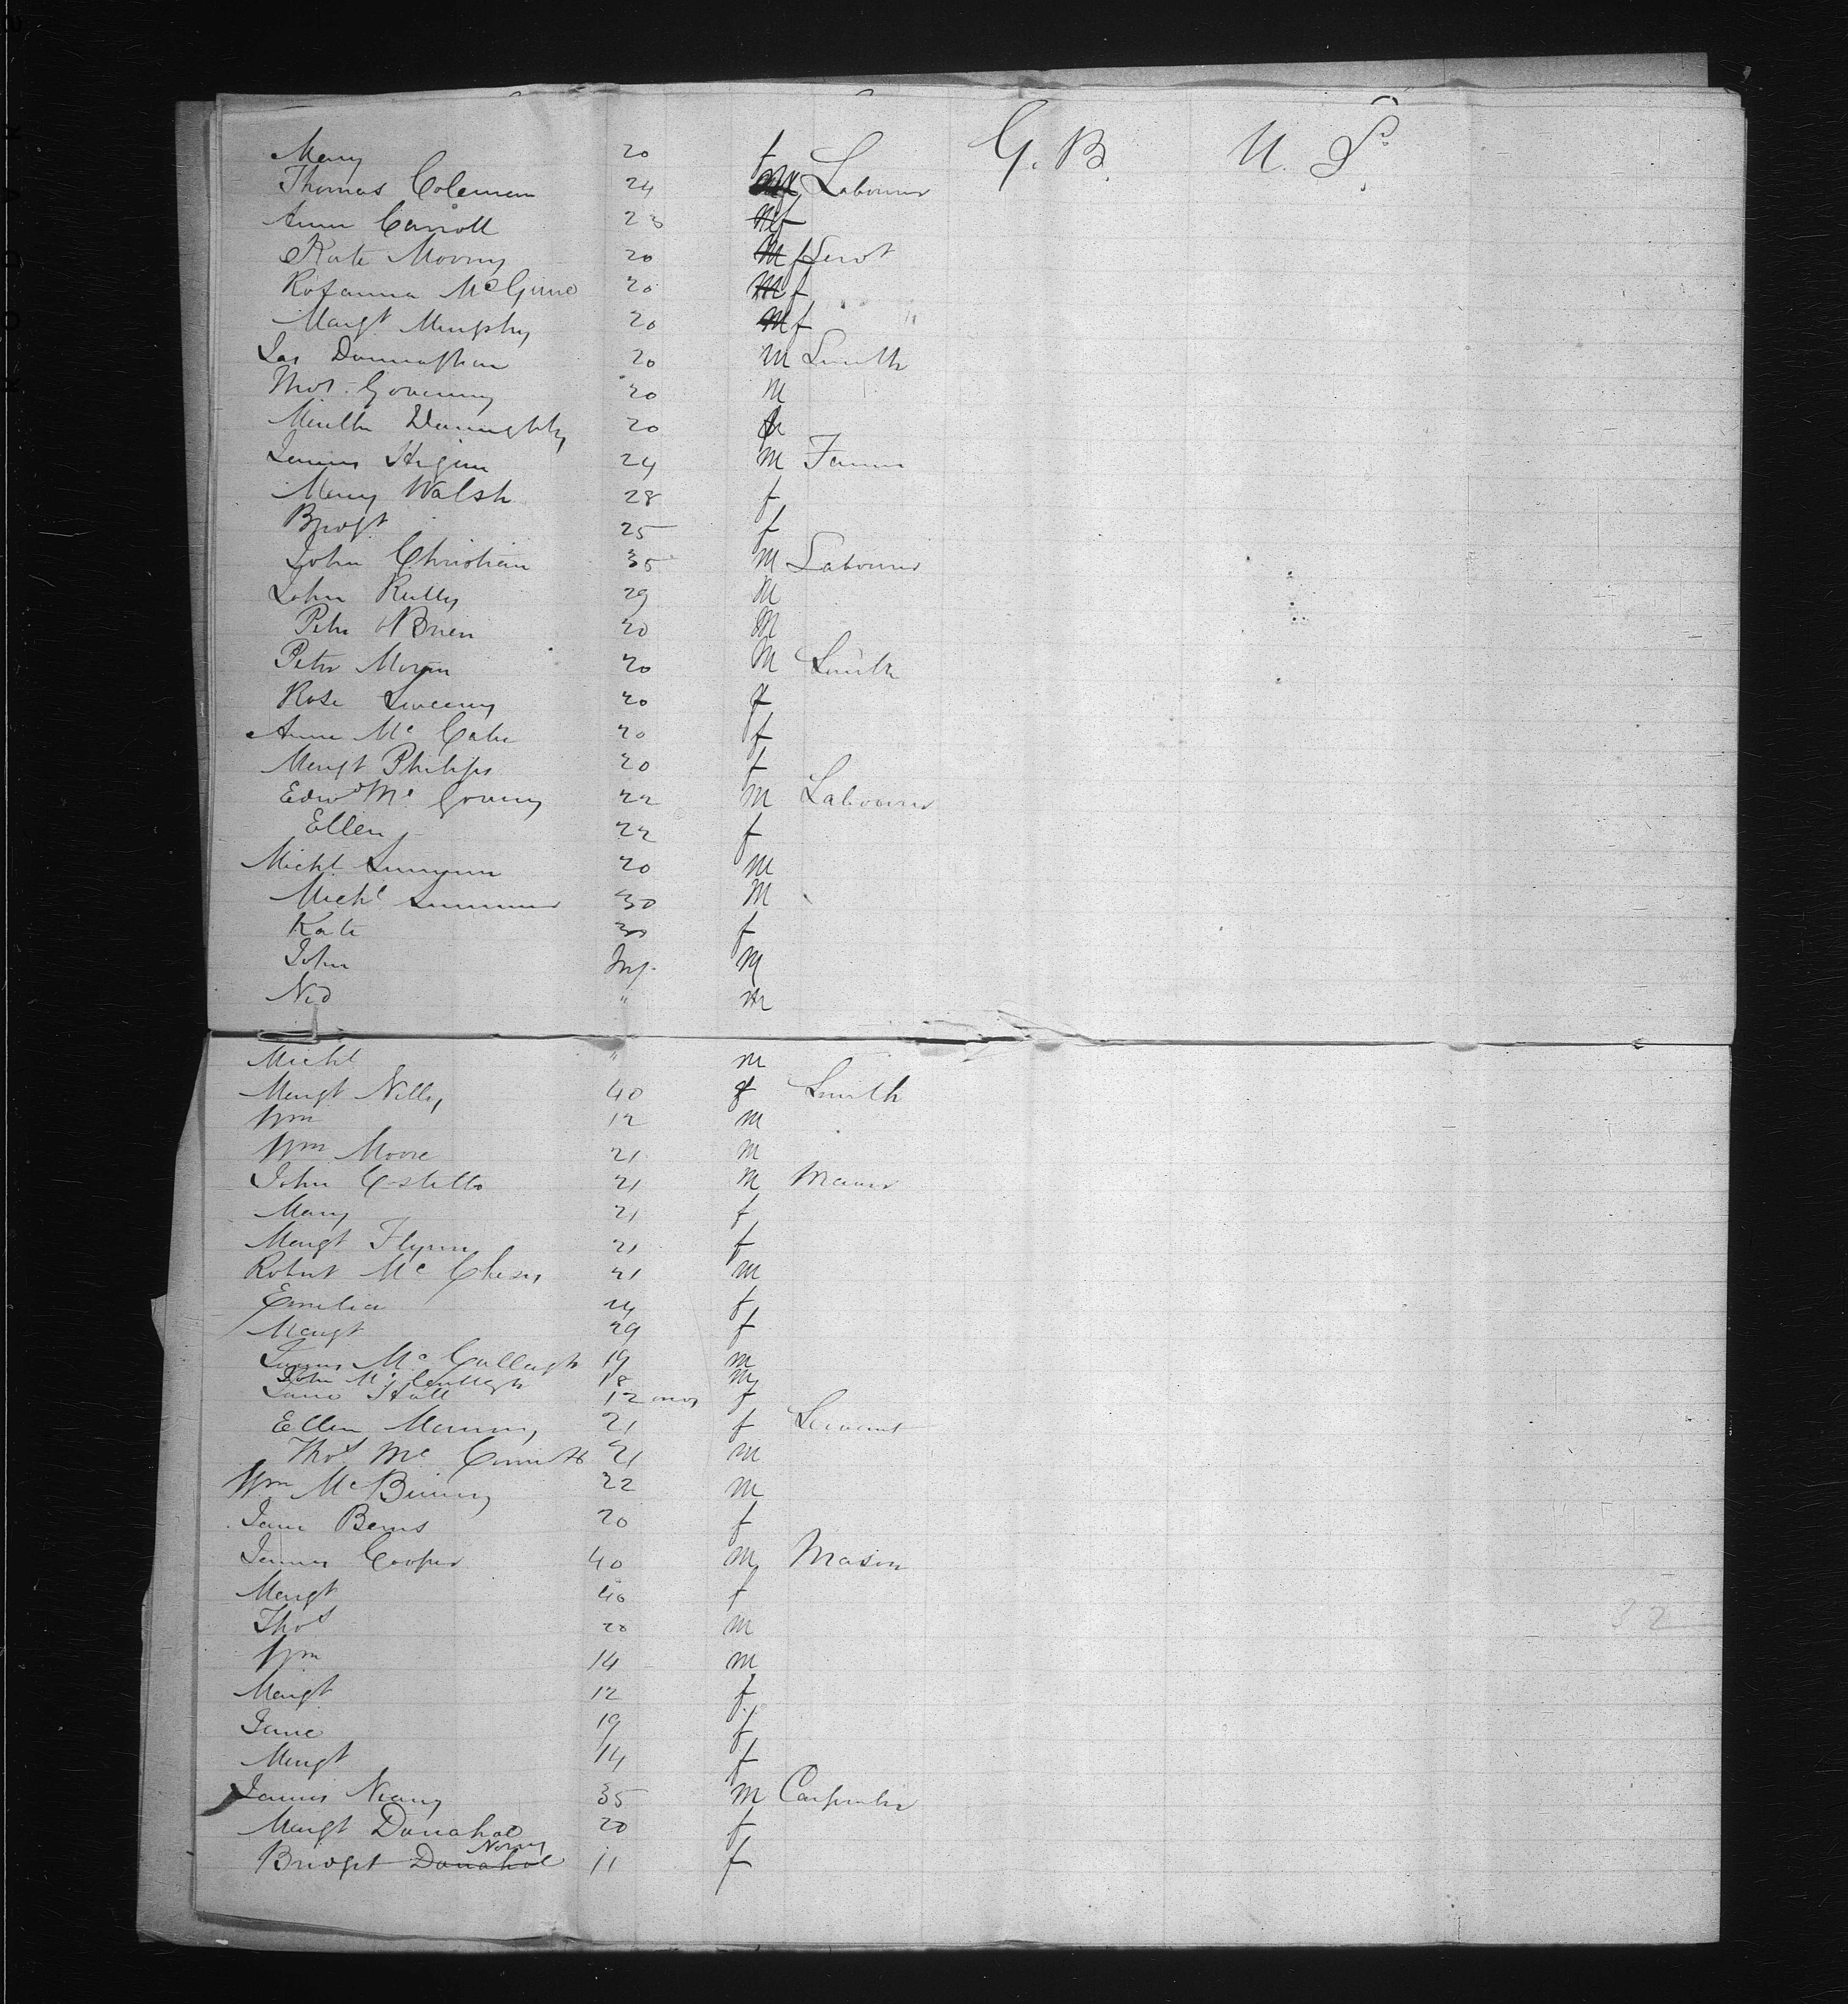 Mary 20 f G. B. U. S.
Thomas Coleman 24 m Labourer
Anne Carroll 23 f
Kate Moony 20 f Servt
Rosanna McGuire 20 f
Margt Murphy 20 f
Jas 20 m Smith
20 m
20
James Higgin 24 m Farmer
Mary Walsh 28 f
Bridgt 25 f
John Christian 35 m Labourer
John Reilly 29 m
Peter OBrien 20 m
Peter Moran 20 m Smith
Rose Sweeny 20 f
Anne Mc Cabe 20 f
Margt Philips 20 f
Edwd Mc 22 m Labourer
Ellen 22 f
Michl 20 m
Michl 30 m
Kate 30 f
John Inf. m
Ned " m
Michl " m
Margt 40 f Smith
Wm 12 m
Wm Moore 21 m
John Costello 21 m
Mary 21 f
Margt Flynn 21 f
Robert Mc 21 m
Emilia 24 f
Margt 29 f
James Mc Cullagh 19 m
John Mc Cullagh 18 m
Jane Hall 12 mos f
Ellen 21 f Servant
Thos Mc 21 m
Wm Mc 22 m
Jane 20 f
James Cooper 40 m Mason
Margt 40 f
Thos 20 m
Wm 14 m
Margt 12 f
Jane 19 f
Margt 14 f
James 35 m Carpenter
Margt Donahoe 20 f
Bridget Donahoe 11 f
32